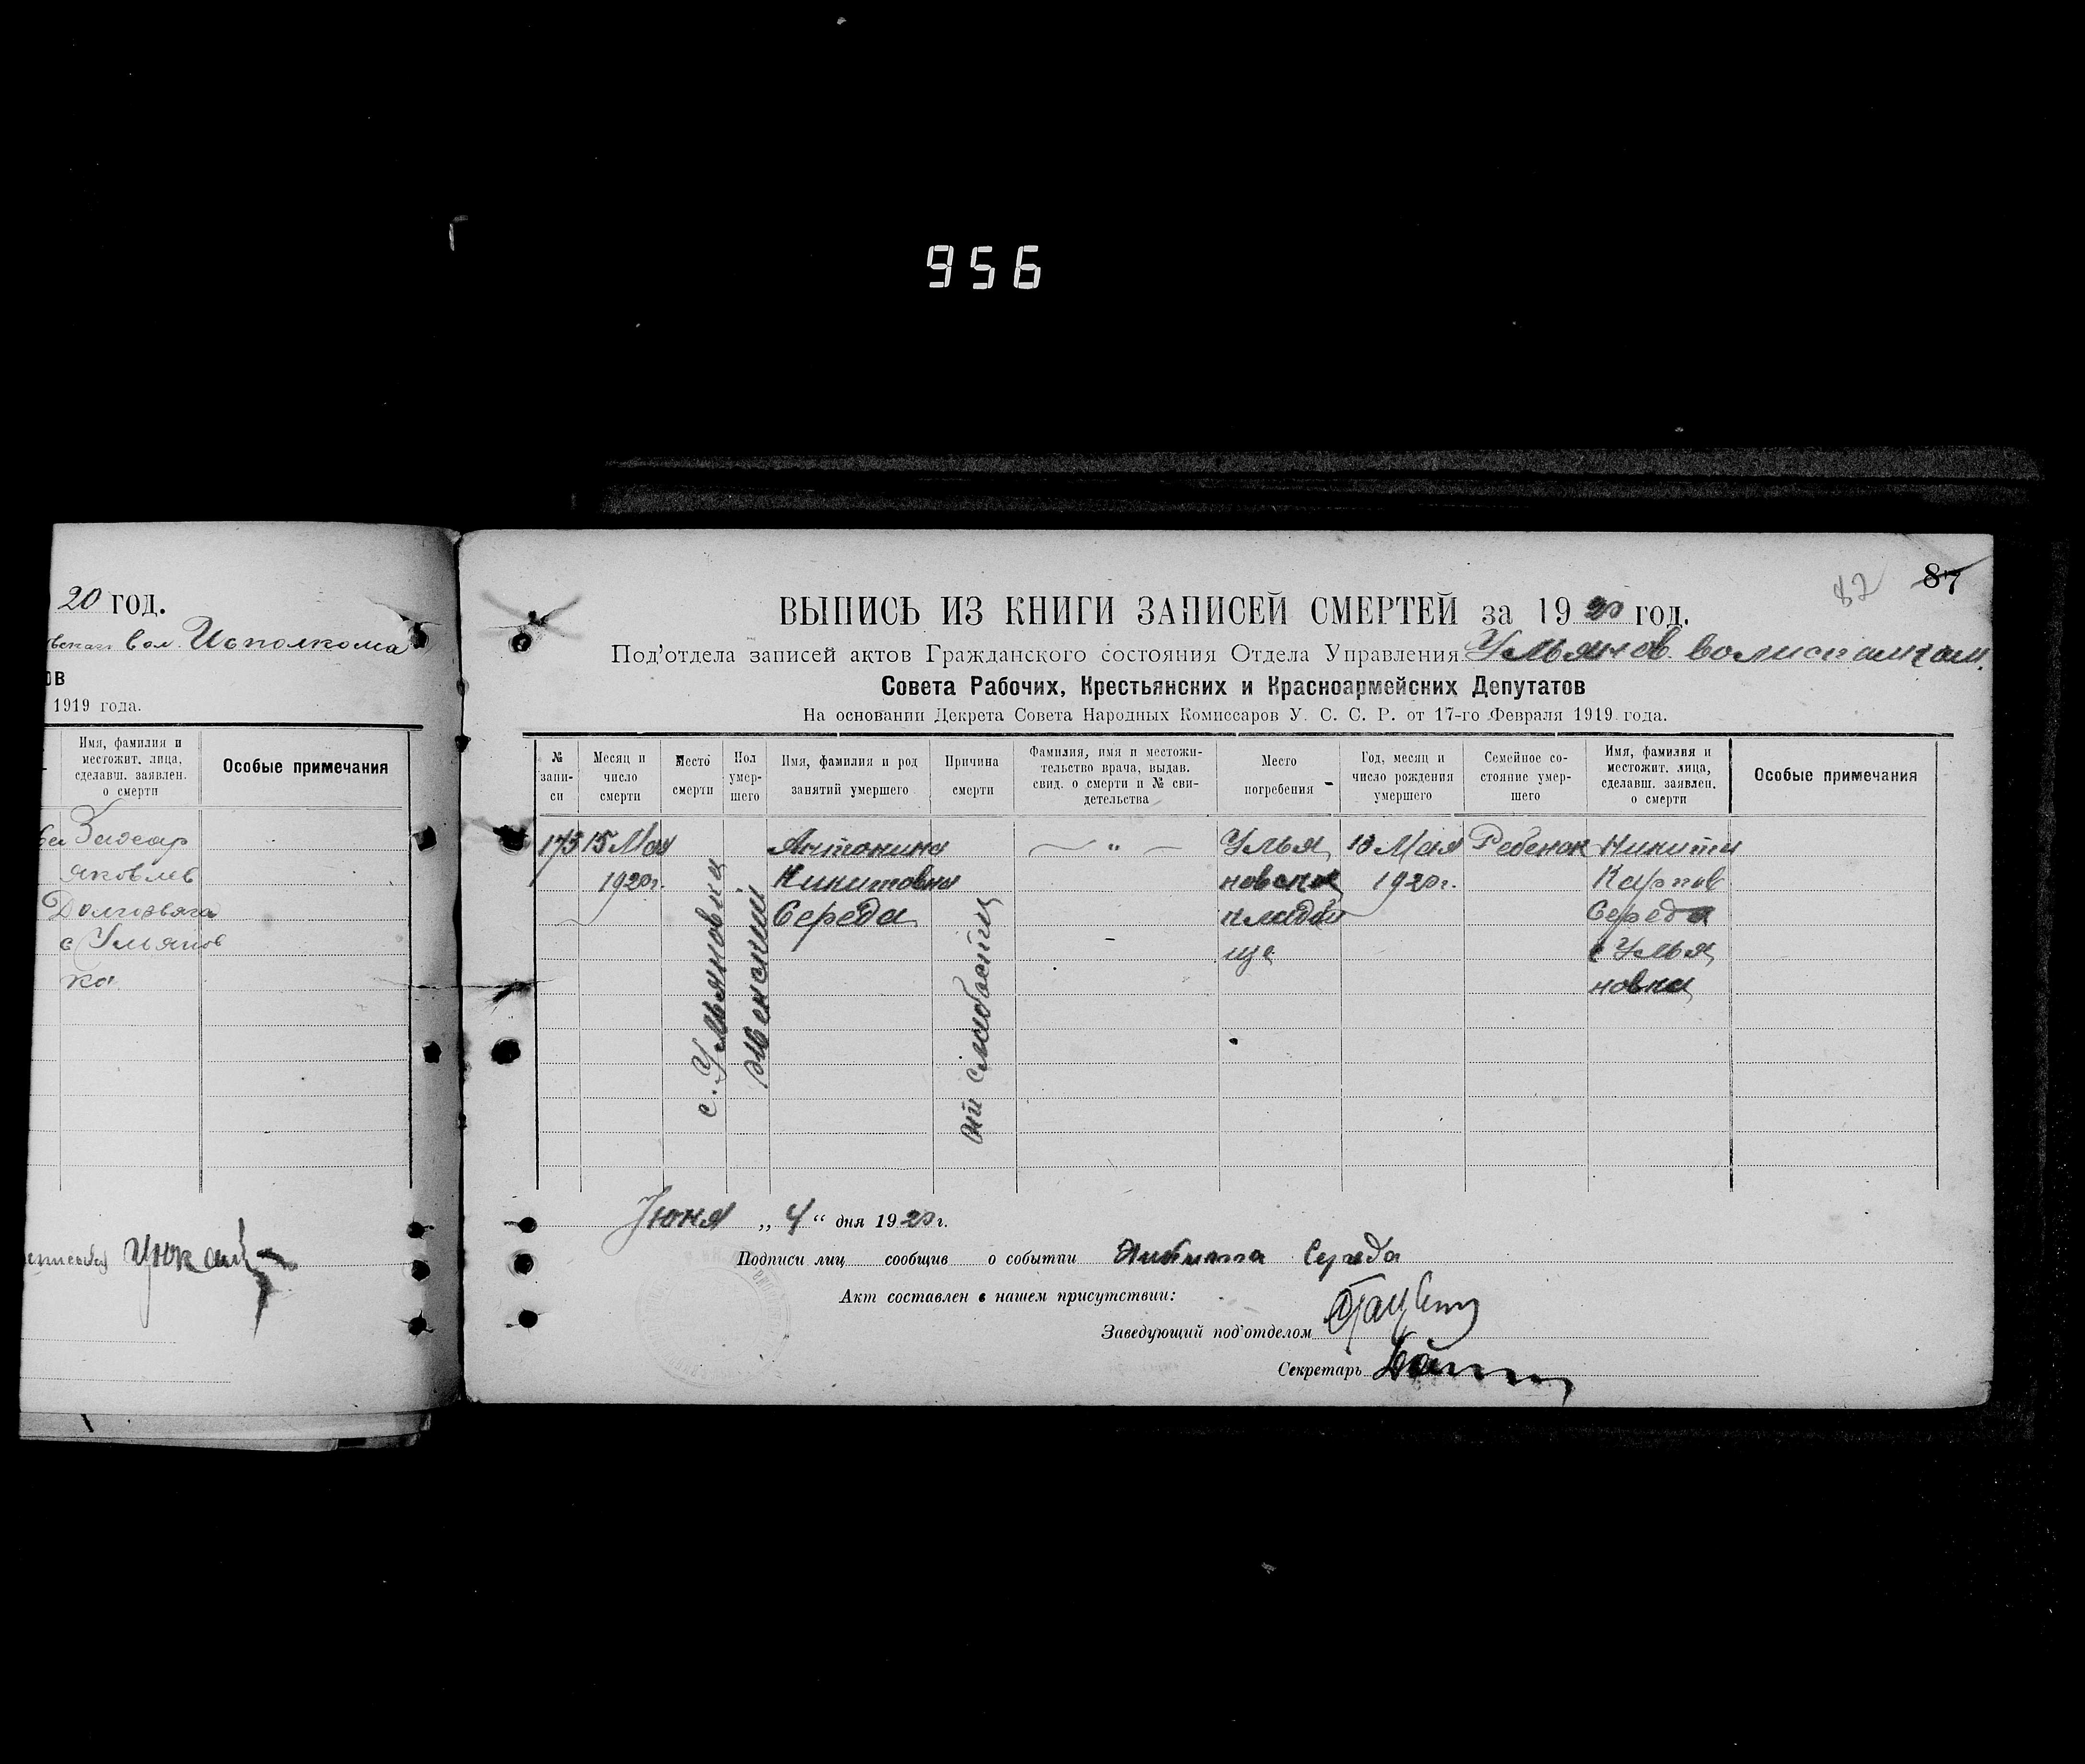 956
20 год.
вол. Исполкома
ов
1919 года.
Имя, фамилия и
местожит. лица,
сделавш. заявлен.
о смерти
Особые примечания
Захар
Яковлев
с Ульянов
ка
82 87
ВЫПИСЬ ИЗ КНИГИ ЗАПИСЕЙ СМЕРТЕЙ за 1920 год.
Под'отдела записей актов Гражданского состояния Отдела Управления Ульянов.
Совета Рабочих, Крестьянских и Красноармейских Депутатов
На основании Декрета Совета Народных Комиссаров У. С. С. Р. от 17-го Февраля 1919 года.
№
запи-
си
Месяц и
число
смерти
Место
смерти
Пол
умер-
шего
Имя, фамилия и род
занятий умершего
Причина
смерти
Фамилия, имя и местожи-
тельство врача, выдав.
свид. о смерти и № сви-
детельства
Место
погребения
Год, месяц и
число рождения
умершего
Семейное со-
стояние умер-
шего
Имя, фамилия и
местожит. лица,
сделавш. заявлен.
о смерти
Особые примечания
173
15 Мая
1920 г.
с. Ульяновка
Женский
Антонина
Никитовна
Середа
слабости
— " —
Улья
новское
кладби
ще
13 Мая
1920 г.
Ребенок
Никита
Карпов
Середа
с Улья
новка
Июня „ 4 “ дня 1920 г.
Подписи лиц сообщив о событии Никита Середа
Акт составлен в нашем присутствии:
Заведующий под'отделом
Секретарь